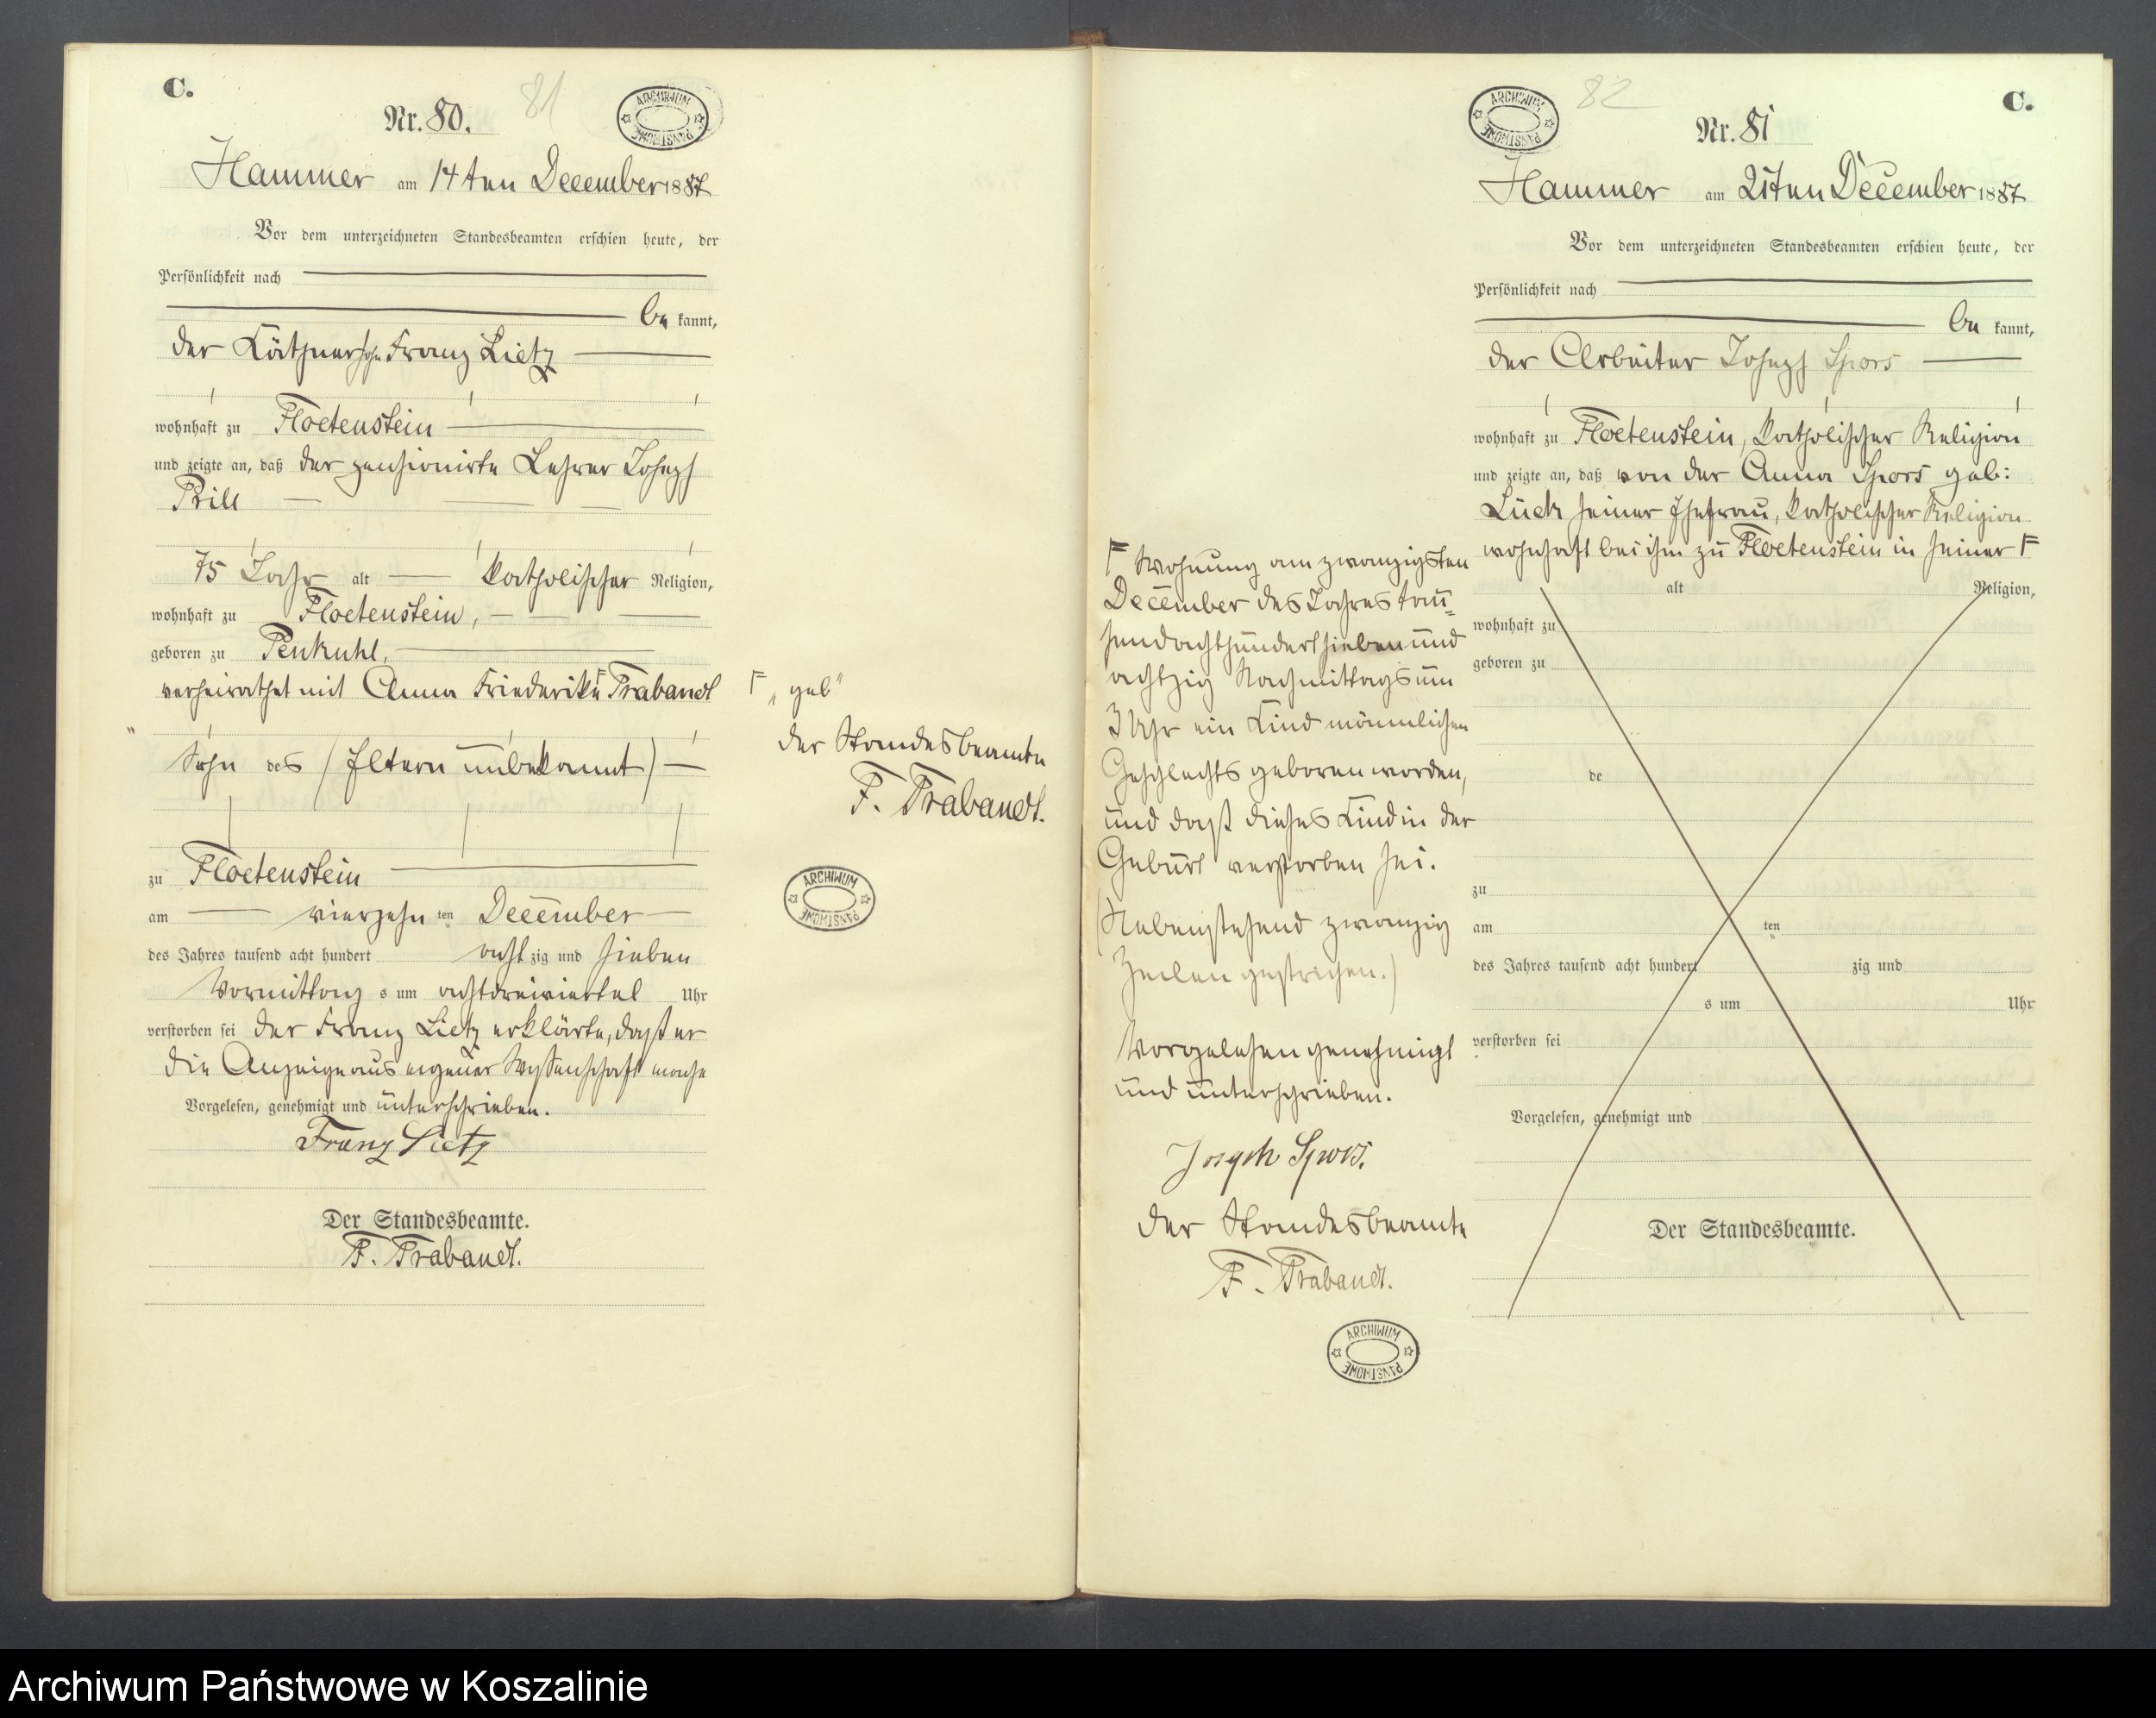 C.
81
Nr. 80.
ARCHIWUM PAŃSTWOWE
Hammer am 14ten December 1887
Vor dem unterzeichneten Standesbeamten erschien heute, der
Persönlichkeit nach
be kannt,
der Käthnersohn Franz Lietz
wohnhaft zu Floetenstein
und zeigte an, daß der pensionirte Lehrer Joseph
Prill
75 Jahr alt katholischer Religion,
wohnhaft zu Floetenstein,
geboren zu Penkuhl,
verheirathet mit Anna Friederike F Trabandt
Sohn des (Eltern unbekannt)
zu Floetenstein
am vierzehn ten December
des Jahres tausend acht hundert acht zig und sieben
Vormittag s um achtdreiviertel Uhr
verstorben sei der Franz Lietz erklärte, daß er
die Anzeige aus eigener Wissenschaft mache
Vorgelesen, genehmigt und unterschrieben.
Franz Lietz
Der Standesbeamte.
F. Trabandt.
F „geb“
der Standesbeamte
F. Trabandt.
ARCHIWUM PAŃSTWOWE
ARCHIWUM PAŃSTWOWE
82
C.
Nr. 81
Hammer am 21ten December 1887
Vor dem unterzeichneten Standesbeamten erschien heute, der
Persönlichkeit nach
be kannt,
der Arbeiter Joseph Spors
wohnhaft zu Floetenstein, katholischer Religion
und zeigte an, daß von der Anna Spors geb:
Lück seiner Ehefrau, katholischer Religion
wohnhaft bei ihm zu Floetenstein in seiner F
F Wohnung am zwanzigsten
December des Jahres tau=
sendachthundertsiebenund
achtzig Nachmittags um
3 Uhr ein Kind männlichen
Geschlechts geboren worden,
und daß dieses Kind in der
Geburt verstorben sei.
(Nebenstehend zwanzig
Zeilen gestrichen.)
Vorgelesen genehmigt
und unterschrieben.
Joseph Spors.
der Standesbeamte
F. Trabandt.
ARCHIWUM PAŃSTWOWE
alt Religion,
wohnhaft zu
geboren zu
de
zu
am ten
des Jahres tausend acht hundert zig und
s um Uhr
verstorben sei
Vorgelesen, genehmigt und
Der Standesbeamte.
Archiwum Państwowe w Koszalinie